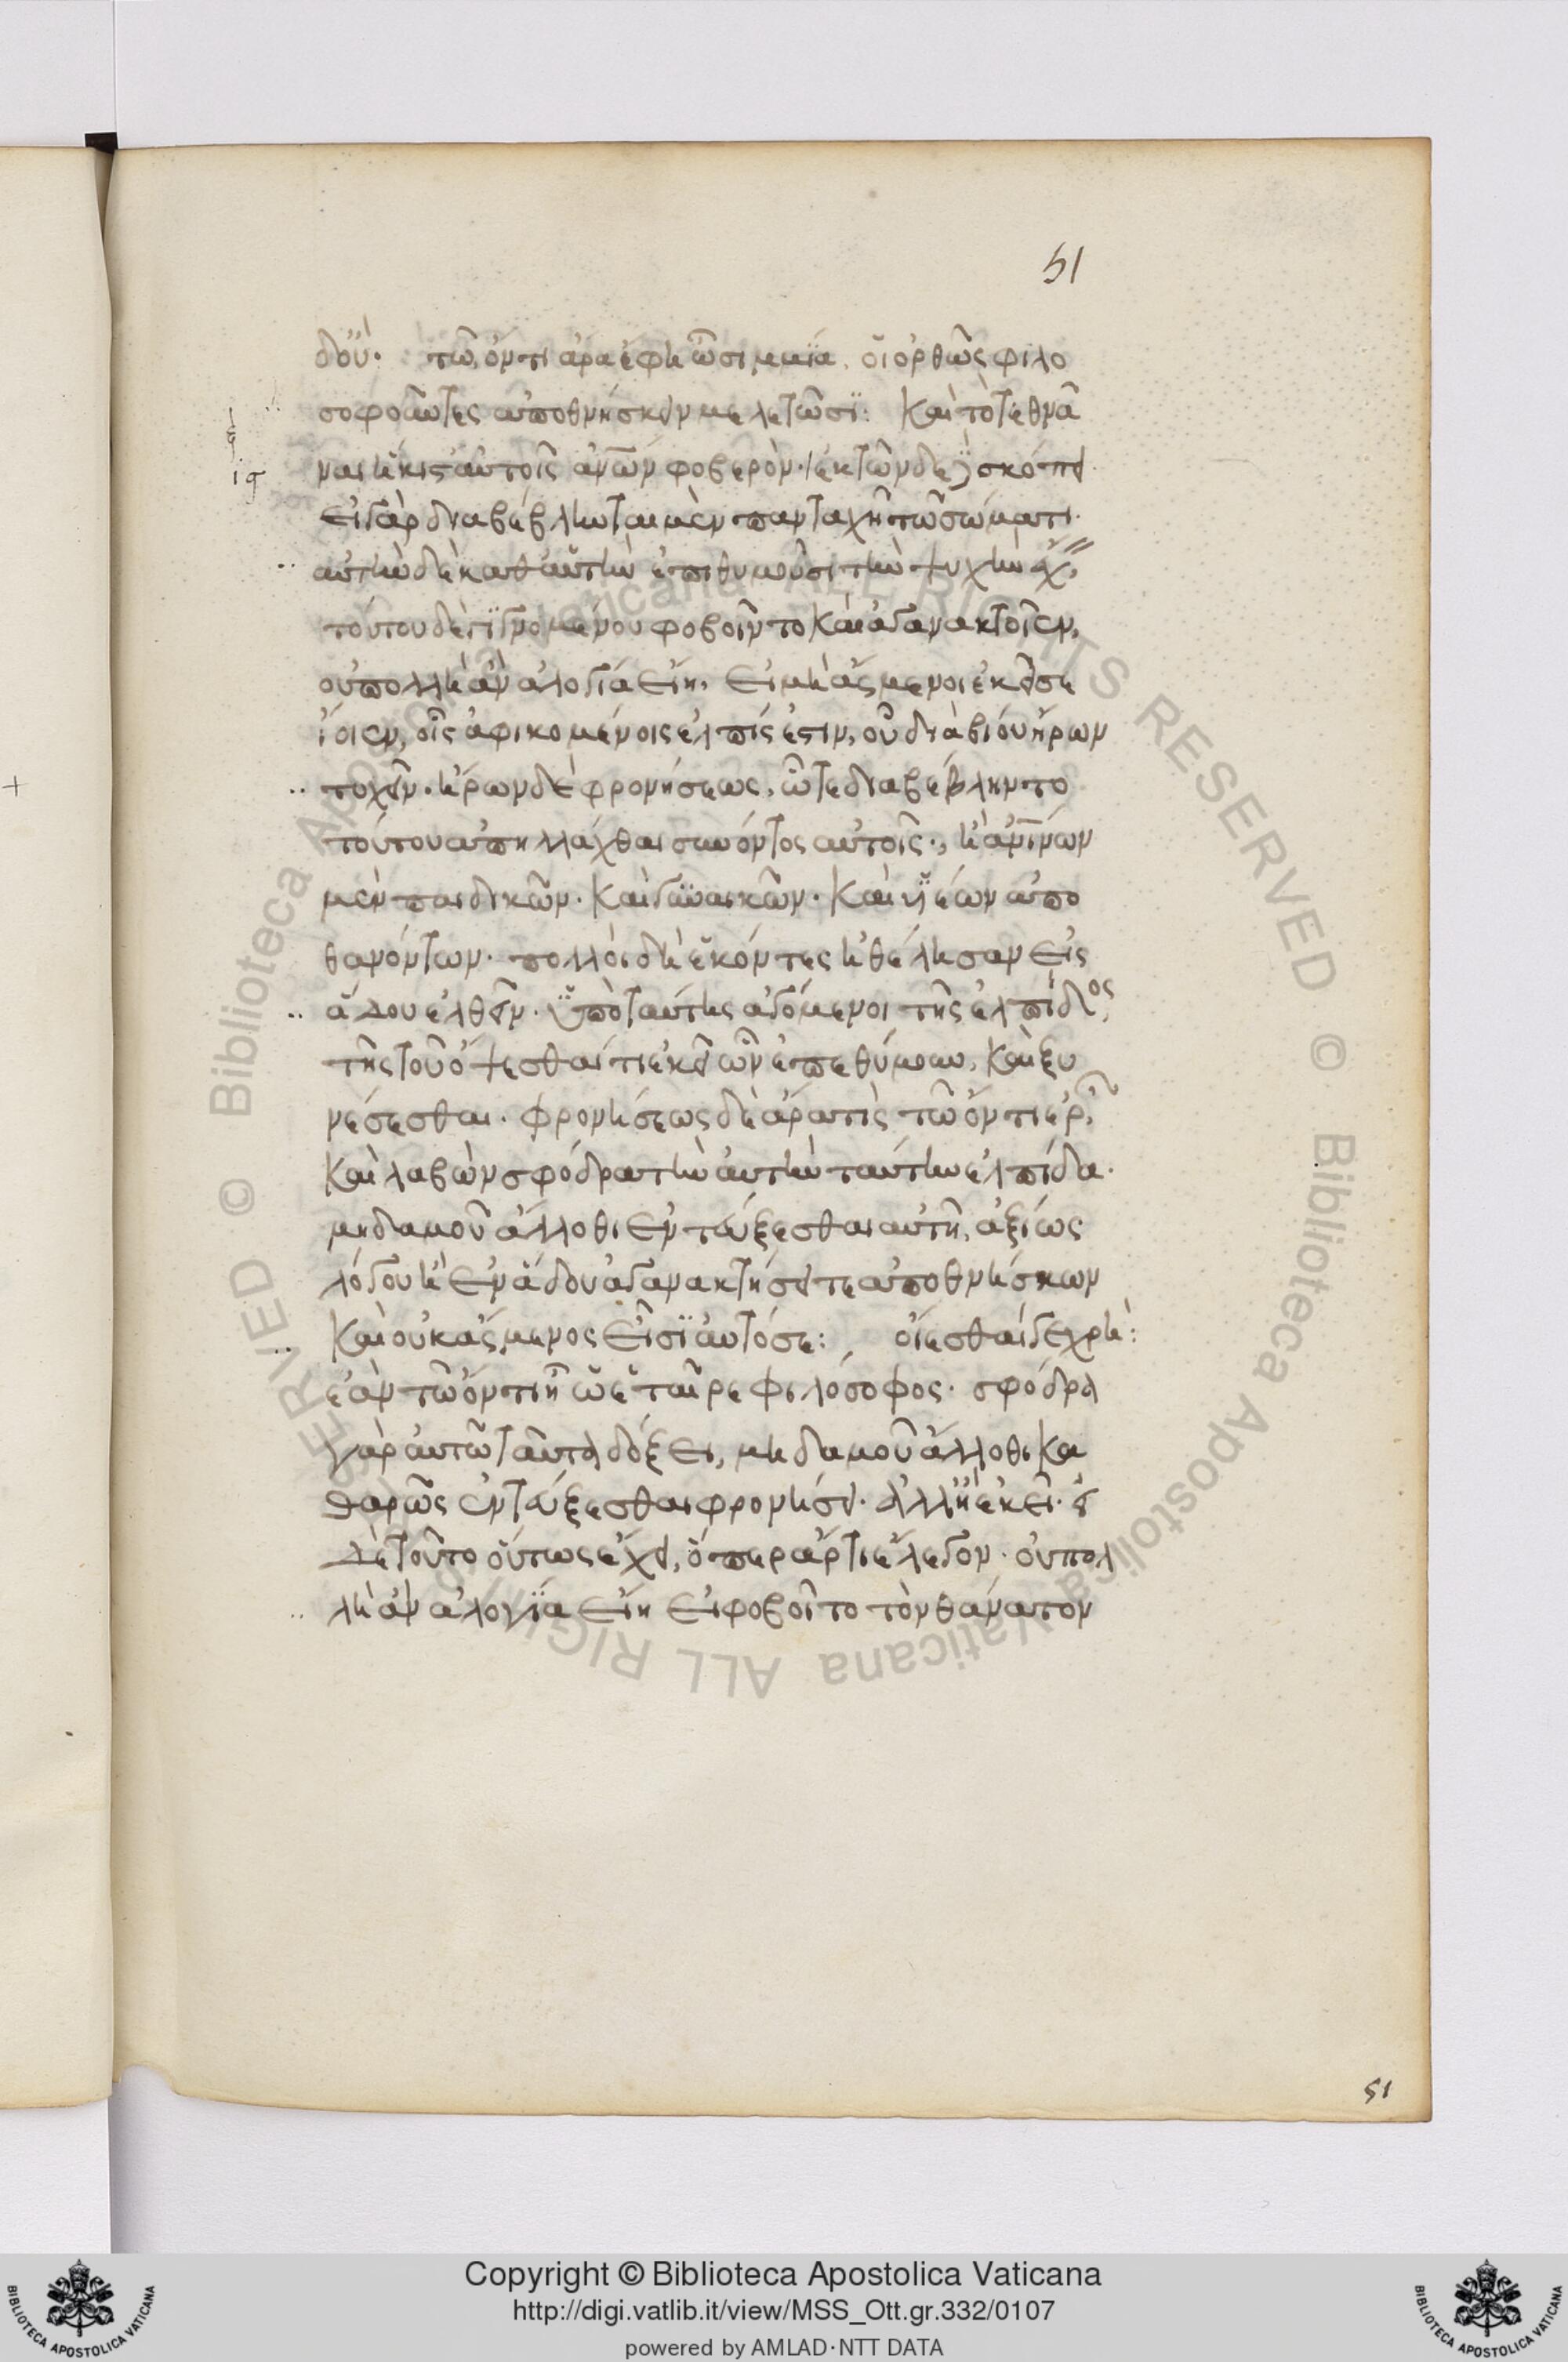 51
δού. τῶ ὄντι ἄρα ἔφη ὦ σιμμία, οἱ ὀρθῶς φιλο
σοφοῦντες ἀποθνήσκειν μελετῶσι: καὶ τὸ τεθνά
ναι ἥκιστ' αὐτοῖς ἀνῶν φοβερόν. ἐκ τῶνδε σκόπει
εἰ γὰρ διαβέβληνται μὲν πανταχῆ τῶ σώματι.
αὐτὴν δὲ καθ' αὑτὴν ἐπιθυμοῦσι τὴν ψυχὴν ἔχ,
τούτου δὲ γιγνομένου φοβοῖντο καὶ ἀγανακτοῖεν,
οὐ πολλὴ ἂν ἀλογία εἴη, εἰ μὴ ἄσμενοι ἐκεῖσε
ἴοιεν, οἷς ἀφικομένοις ἐλπίς ἐστιν, οὗ διὰ βίου ἤρων
τυχεῖν. ἤρων δὲ φρονήσεως, ὧ τε διαβέβληντο
τούτου ἀπηλλάχθαι συνόντος αὐτοῖς., ἢ ἀνίνων
μὲν παιδικῶν. καὶ γυναικῶν. καὶ υἱέων ἀπο
θανόντων. πολλοὶ δὴ ἑκόντες ἠθέλησαν εἰς
ἅδου ἐλθεῖν. ὑπὸ ταύτης ἀγόμενοι τῆς ἐλπίδος,
τῆς τοῦ ὄψεσθαί τι ἐκεῖ ὧν ἐπεθύμουν, καὶ ξυ
νέσεσθαι. φρονήσεως δὲ ἄρα τὶς τῶ ὄντι ἐρῶν,
καὶ λαβὼν σφόδρα τὴν αὐτὴν ταύτην ἐλπίδα.
μηδαμοῦ ἄλλοθι ἐντεύξεσθαι αὐτῆ, ἀξίως
λόγου ἢ ἐν ἅδου ἀγανακτήσει τε ἀποθνήσκων
καὶ οὐκ ἄσμενος εἶσι αὐτόσε: οἴεσθαί γε χρή:
ἐὰν τῶ ὄντι ἦ ὦ ἑταῖρε φιλόσοφος. σφόδρα
γὰρ αὐτῶ ταῦτα δόξει, μηδαμοῦ ἄλλοθι κα
θαρῶς ἐντεύξεσθαι φρονήσει. ἀλλ' ἢ ἐκεῖ. εἰ
δὲ τοῦτο οὕτως ἔχει, ὅπερ ἄρτι ἔλεγον. οὐ πολ
λὴ ἂν ἀλογία εἴη εἰ φοβοῖτο τὸν θάνατον
51
Copyright © Biblioteca Apostolica Vaticana
http://digi.vatlib.it/view/MSS_Ott.gr.332/0107
powered by AMLAD·NTT DATA